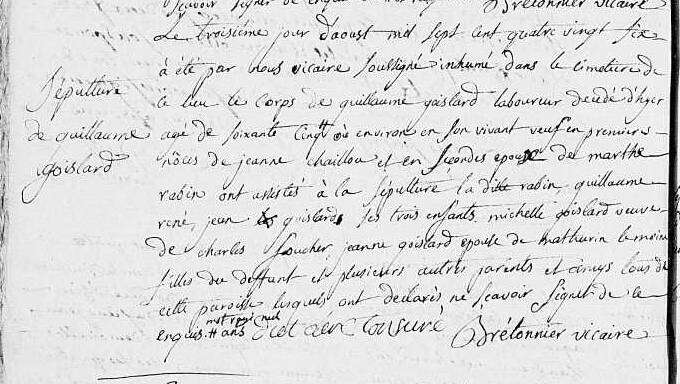 scavoir signer de enquis
Brétonnier vicaire
Le troisiéme jour daoust mil sept cent quatre vingt six
à été par nous vicaire soussigné inhumé dans le cimetiere de
ce lieu le corps de guillaume goislard laboureur décédé d'hyer
agé de soixante cinq environ en son vivant veuf en premieres
nôces de jeanne chaillou et en secondes epoux de marthe
rabin ont assistés à la sépulture la ditte rabin, guillaume
rené, jean goislards ses trois enfants, michelle goislard veuve
de charles foucher, jeanne goislard epouse de mathurin le moine
filles du deffunt et plusieurs autres parents et amys tous de
cette paroisse lesquels ont declarés ne scavoir signer de ce
enquis. # ans
mot rayé nul
Brétonnier vicaire
Sépulture
de guillaume
goislard